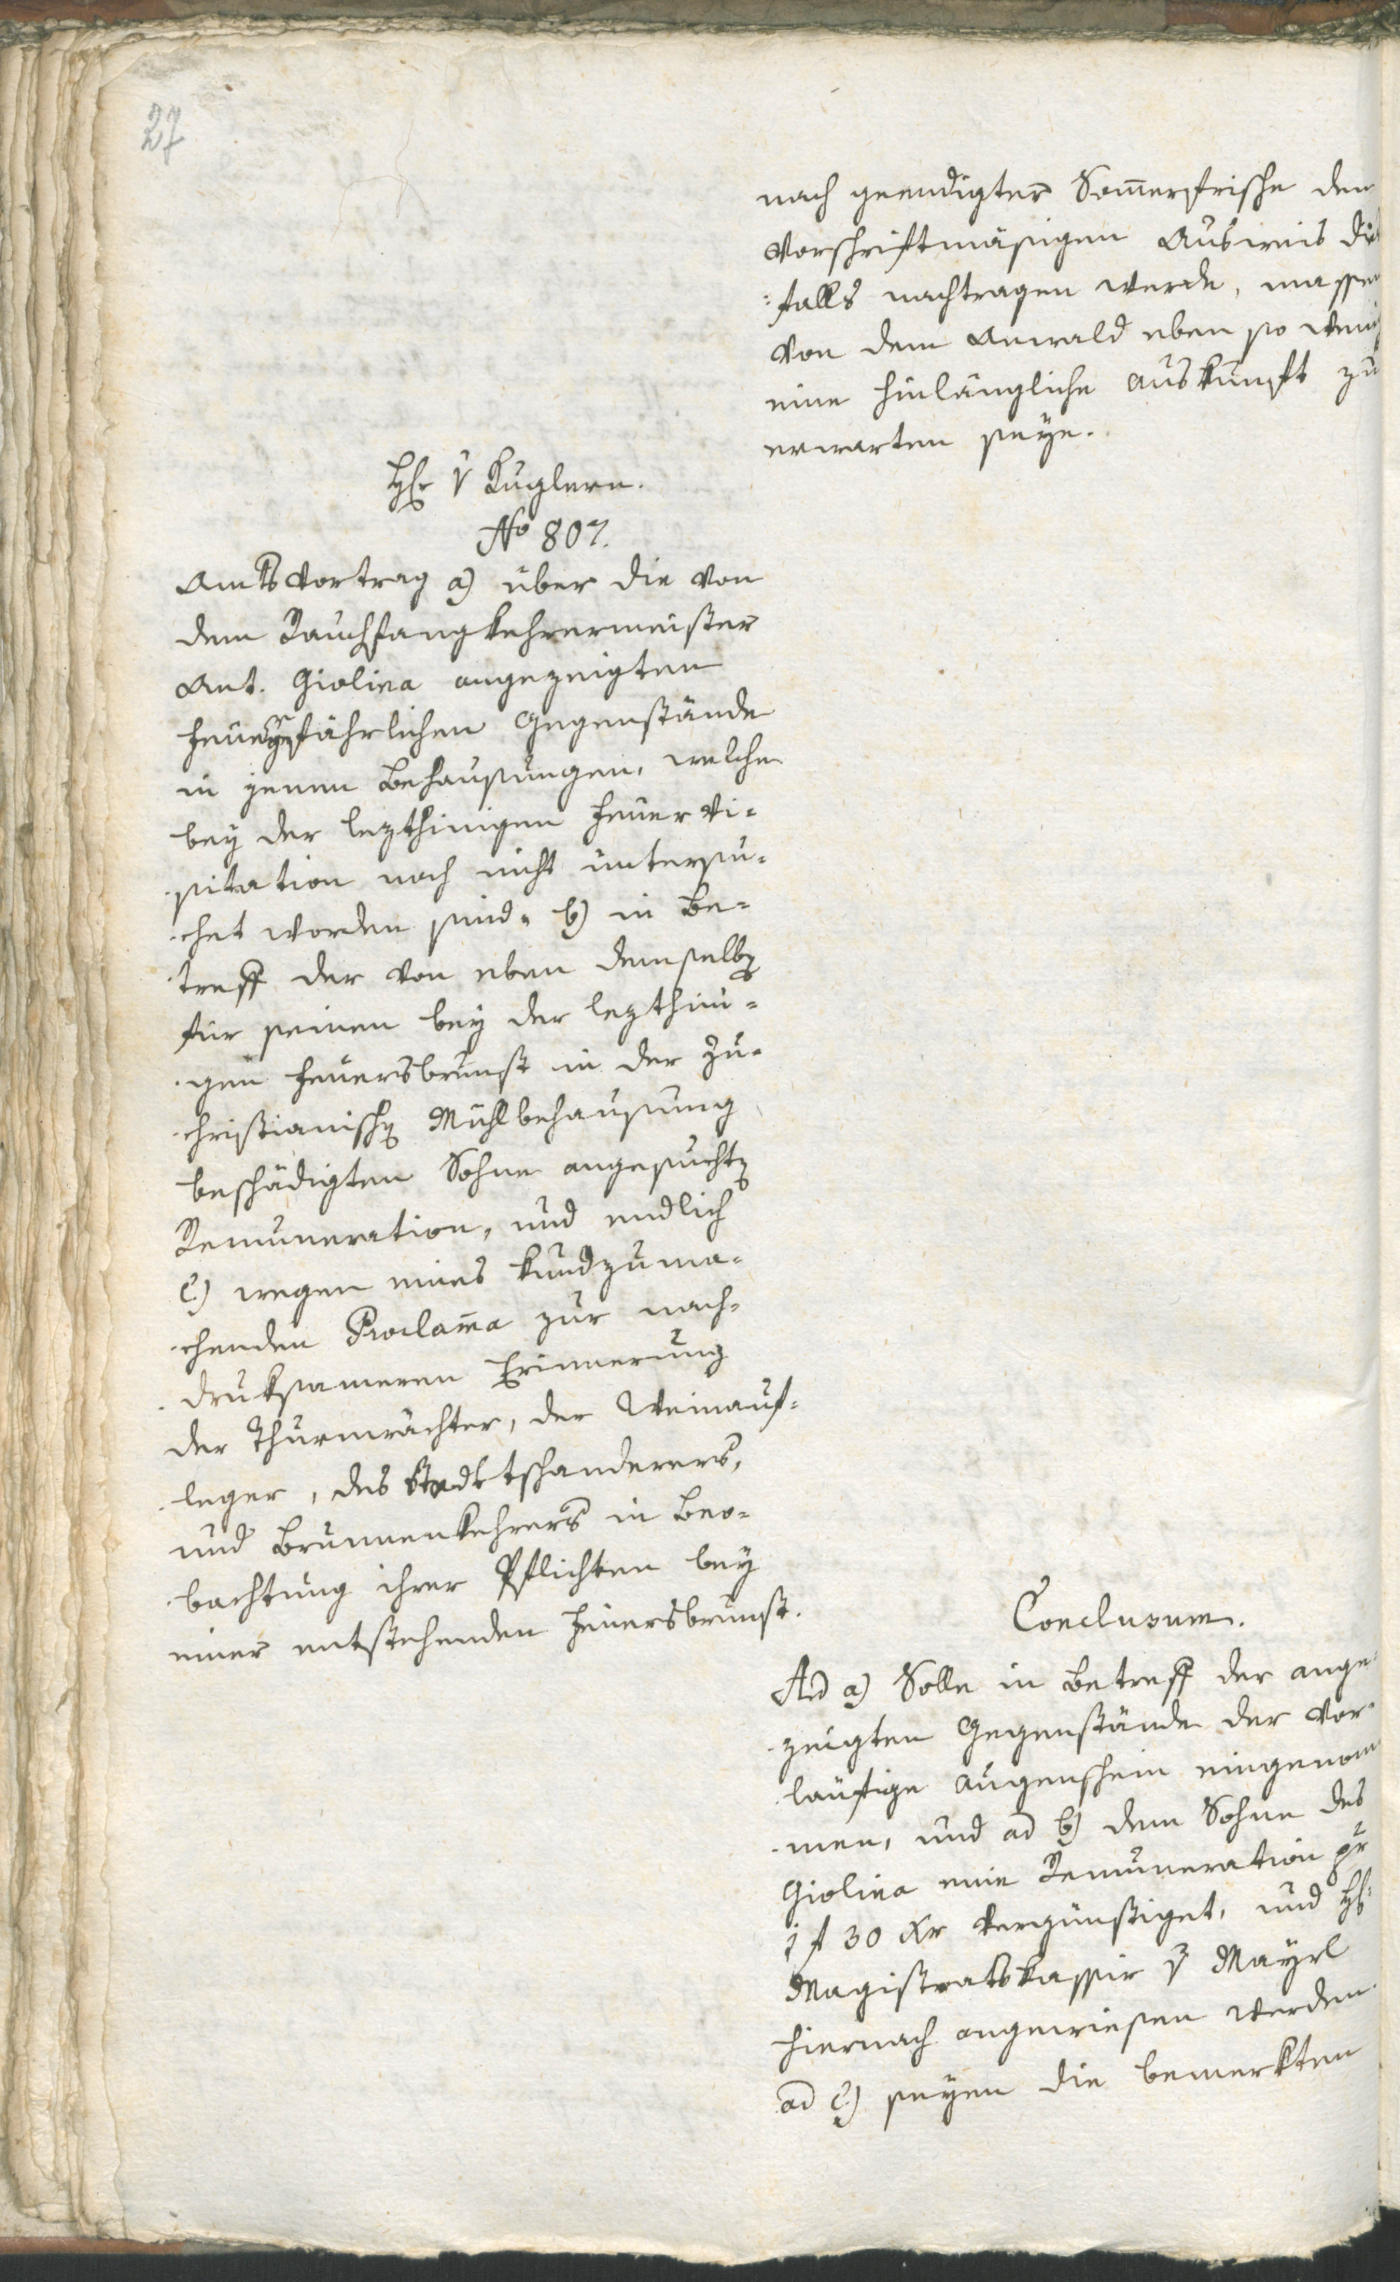 27
nach geendigter Som̅erfrische den
vorschriftmäsigen Ausweis dies
falls nachtragen werde, massen
von dem Anwald eben so wenig
eine hinlängliche Auskunft zu
erwarten seye.
H̅r v Kuglern.
No 807.
Amtsvortrag a) über die von
dem Rauchfangkehrermeister
Ant. Giolina angezeigten
feuergefährlichen Gegenstände
in jenen Behausungen, welche
bey der lezthinigen Feuer Vi-
sitation noch nicht untersu-
chet worden sind. b) in Be-
treff der von eben demselbẽ
für seinen bey der lezthini-
gen Feuersbrunst in der Zu-
christianischẽ Mühlbehausung
beschädigten Sohne angesuchtẽ
Remuneration, und endlich
c) wegen eines kundzuma-
chenden Proclam̅a zur nach-
druksameren Erinnerung
der Thurmwächter, der Weinauf-
leger, des Stadttschanderers,
und Brunnenkehrers in Beo-
bachtung ihrer Pflichten bey
einer entstehenden Feuersbrunst.
Conclusum.
Ad a) Solle in Betreff der ange
zeigten Gegenstände der vor-
läufige Augenschein eingenom
men, und ad b) dem Sohne des
Giolina eine Remuneration pr
1 f 30 Xr vergünstiget, und H̅
Magistratskassir v Mayrl
hiernach angewiesen werden.
ad c) seyen die bemerkten